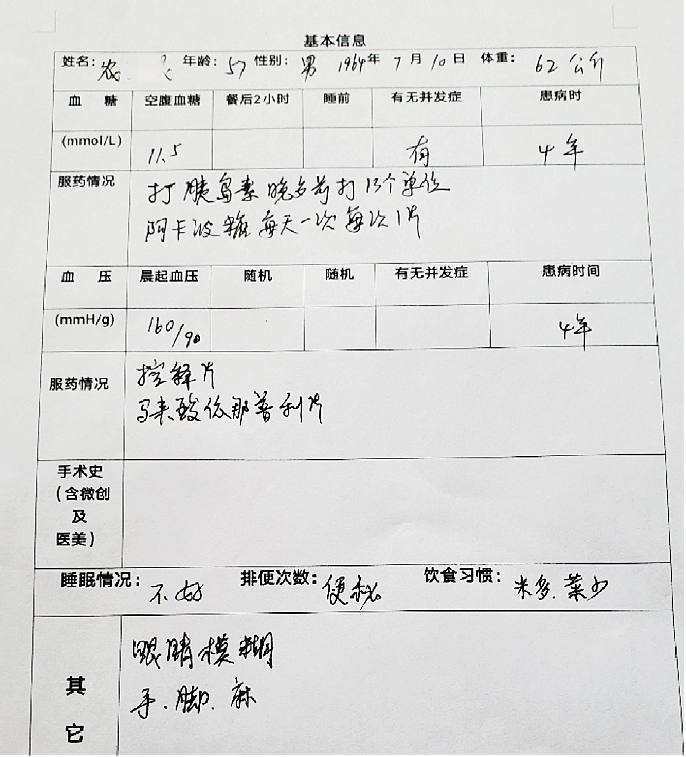 基本信息
姓名：农 飞 年龄：57 性别：男 1964年 7月10日 体重：62公斤
血 糖 空腹血糖 餐后2小时 睡前 有无并发症 患病时
(mmol/L) 11.5 有 4年
服药情况 打胰岛素晚名前打13个单位
阿卡波糖每天一次每次1片
血 压 晨起血压 随机 随机 有无并发症 患病时间
(mmH/g) 160/90 4年
服药情况 控释片
马来酸依那普利片
手术史
（含微创
及
医美）
睡眠情况：不好 排便次数：便秘 饮食习惯：米多.菜少
眼睛模糊
手.脚.麻
其
它